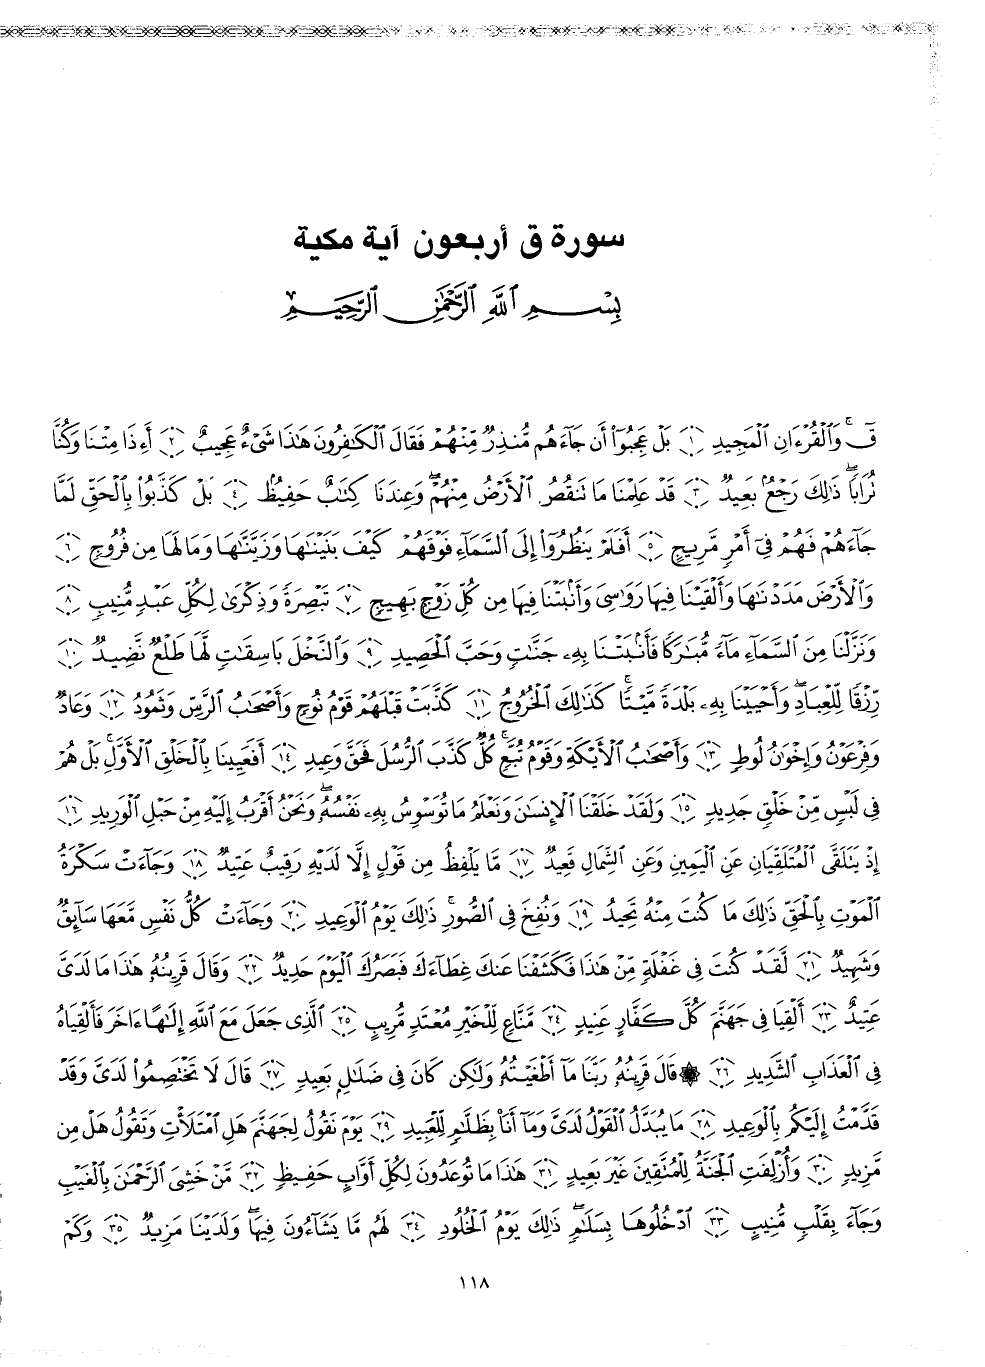 سورة ق أربعون آية مكية
بِسْمِ ٱللَّهِ ٱلرَّحْمَٰنِ ٱلرَّحِيمِ
قٓ ۚ وَٱلْقُرْءَانِ ٱلْمَجِيدِ ۝١ بَلْ عَجِبُوٓا۟ أَن جَآءَهُم مُّنذِرٌ مِّنْهُمْ فَقَالَ ٱلْكَٰفِرُونَ هَٰذَا شَىْءٌ عَجِيبٌ ۝٢ أَءِذَا مِتْنَا وَكُنَّا
تُرَابًا ۖ ذَٰلِكَ رَجْعٌۢ بَعِيدٌ ۝٣ قَدْ عَلِمْنَا مَا تَنقُصُ ٱلْأَرْضُ مِنْهُمْ ۖ وَعِندَنَا كِتَٰبٌ حَفِيظٌۢ ۝٤ بَلْ كَذَّبُوا۟ بِٱلْحَقِّ لَمَّا
جَآءَهُمْ فَهُمْ فِىٓ أَمْرٍ مَّرِيجٍ ۝٥ أَفَلَمْ يَنظُرُوٓا۟ إِلَى ٱلسَّمَآءِ فَوْقَهُمْ كَيْفَ بَنَيْنَٰهَا وَزَيَّنَّٰهَا وَمَا لَهَا مِن فُرُوجٍ ۝٦
وَٱلْأَرْضَ مَدَدْنَٰهَا وَأَلْقَيْنَا فِيهَا رَوَٰسِىَ وَأَنۢبَتْنَا فِيهَا مِن كُلِّ زَوْجٍۭ بَهِيجٍ ۝٧ تَبْصِرَةً وَذِكْرَىٰ لِكُلِّ عَبْدٍ مُّنِيبٍ ۝٨
وَنَزَّلْنَا مِنَ ٱلسَّمَآءِ مَآءً مُّبَٰرَكًا فَأَنۢبَتْنَا بِهِۦ جَنَّٰتٍ وَحَبَّ ٱلْحَصِيدِ ۝٩ وَٱلنَّخْلَ بَاسِقَٰتٍ لَّهَا طَلْعٌ نَّضِيدٌ ۝١٠
رِّزْقًا لِّلْعِبَادِ ۖ وَأَحْيَيْنَا بِهِۦ بَلْدَةً مَّيْتًا ۚ كَذَٰلِكَ ٱلْخُرُوجُ ۝١١ كَذَّبَتْ قَبْلَهُمْ قَوْمُ نُوحٍ وَأَصْحَٰبُ ٱلرَّسِّ وَثَمُودُ ۝١٢ وَعَادٌ
وَفِرْعَوْنُ وَإِخْوَٰنُ لُوطٍ ۝١٣ وَأَصْحَٰبُ ٱلْأَيْكَةِ وَقَوْمُ تُبَّعٍ ۚ كُلٌّ كَذَّبَ ٱلرُّسُلَ فَحَقَّ وَعِيدِ ۝١٤ أَفَعَيِينَا بِٱلْخَلْقِ ٱلْأَوَّلِ ۚ بَلْ هُمْ
فِى لَبْسٍ مِّنْ خَلْقٍ جَدِيدٍ ۝١٥ وَلَقَدْ خَلَقْنَا ٱلْإِنسَٰنَ وَنَعْلَمُ مَا تُوَسْوِسُ بِهِۦ نَفْسُهُۥ ۖ وَنَحْنُ أَقْرَبُ إِلَيْهِ مِنْ حَبْلِ ٱلْوَرِيدِ ۝١٦
إِذْ يَتَلَقَّى ٱلْمُتَلَقِّيَانِ عَنِ ٱلْيَمِينِ وَعَنِ ٱلشِّمَالِ قَعِيدٌ ۝١٧ مَّا يَلْفِظُ مِن قَوْلٍ إِلَّا لَدَيْهِ رَقِيبٌ عَتِيدٌ ۝١٨ وَجَآءَتْ سَكْرَةُ
ٱلْمَوْتِ بِٱلْحَقِّ ۖ ذَٰلِكَ مَا كُنتَ مِنْهُ تَحِيدُ ۝١٩ وَنُفِخَ فِى ٱلصُّورِ ۚ ذَٰلِكَ يَوْمُ ٱلْوَعِيدِ ۝٢٠ وَجَآءَتْ كُلُّ نَفْسٍ مَّعَهَا سَآئِقٌ
وَشَهِيدٌ ۝٢١ لَّقَدْ كُنتَ فِى غَفْلَةٍ مِّنْ هَٰذَا فَكَشَفْنَا عَنكَ غِطَآءَكَ فَبَصَرُكَ ٱلْيَوْمَ حَدِيدٌ ۝٢٢ وَقَالَ قَرِينُهُۥ هَٰذَا مَا لَدَىَّ
عَتِيدٌ ۝٢٣ أَلْقِيَا فِى جَهَنَّمَ كُلَّ كَفَّارٍ عَنِيدٍ ۝٢٤ مَّنَّاعٍ لِّلْخَيْرِ مُعْتَدٍ مُّرِيبٍ ۝٢٥ ٱلَّذِى جَعَلَ مَعَ ٱللَّهِ إِلَٰهًا ءَاخَرَ فَأَلْقِيَاهُ
فِى ٱلْعَذَابِ ٱلشَّدِيدِ ۝٢٦ ۞ قَالَ قَرِينُهُۥ رَبَّنَا مَآ أَطْغَيْتُهُۥ وَلَٰكِن كَانَ فِى ضَلَٰلٍۭ بَعِيدٍ ۝٢٧ قَالَ لَا تَخْتَصِمُوا۟ لَدَىَّ وَقَدْ
قَدَّمْتُ إِلَيْكُم بِٱلْوَعِيدِ ۝٢٨ مَا يُبَدَّلُ ٱلْقَوْلُ لَدَىَّ وَمَآ أَنَا۠ بِظَلَّٰمٍ لِّلْعَبِيدِ ۝٢٩ يَوْمَ نَقُولُ لِجَهَنَّمَ هَلِ ٱمْتَلَأْتِ وَتَقُولُ هَلْ مِن
مَّزِيدٍ ۝٣٠ وَأُزْلِفَتِ ٱلْجَنَّةُ لِلْمُتَّقِينَ غَيْرَ بَعِيدٍ ۝٣١ هَٰذَا مَا تُوعَدُونَ لِكُلِّ أَوَّابٍ حَفِيظٍ ۝٣٢ مَّنْ خَشِىَ ٱلرَّحْمَٰنَ بِٱلْغَيْبِ
وَجَآءَ بِقَلْبٍ مُّنِيبٍ ۝٣٣ ٱدْخُلُوهَا بِسَلَٰمٍ ۖ ذَٰلِكَ يَوْمُ ٱلْخُلُودِ ۝٣٤ لَهُم مَّا يَشَآءُونَ فِيهَا ۖ وَلَدَيْنَا مَزِيدٌ ۝٣٥ وَكَمْ
١١٨